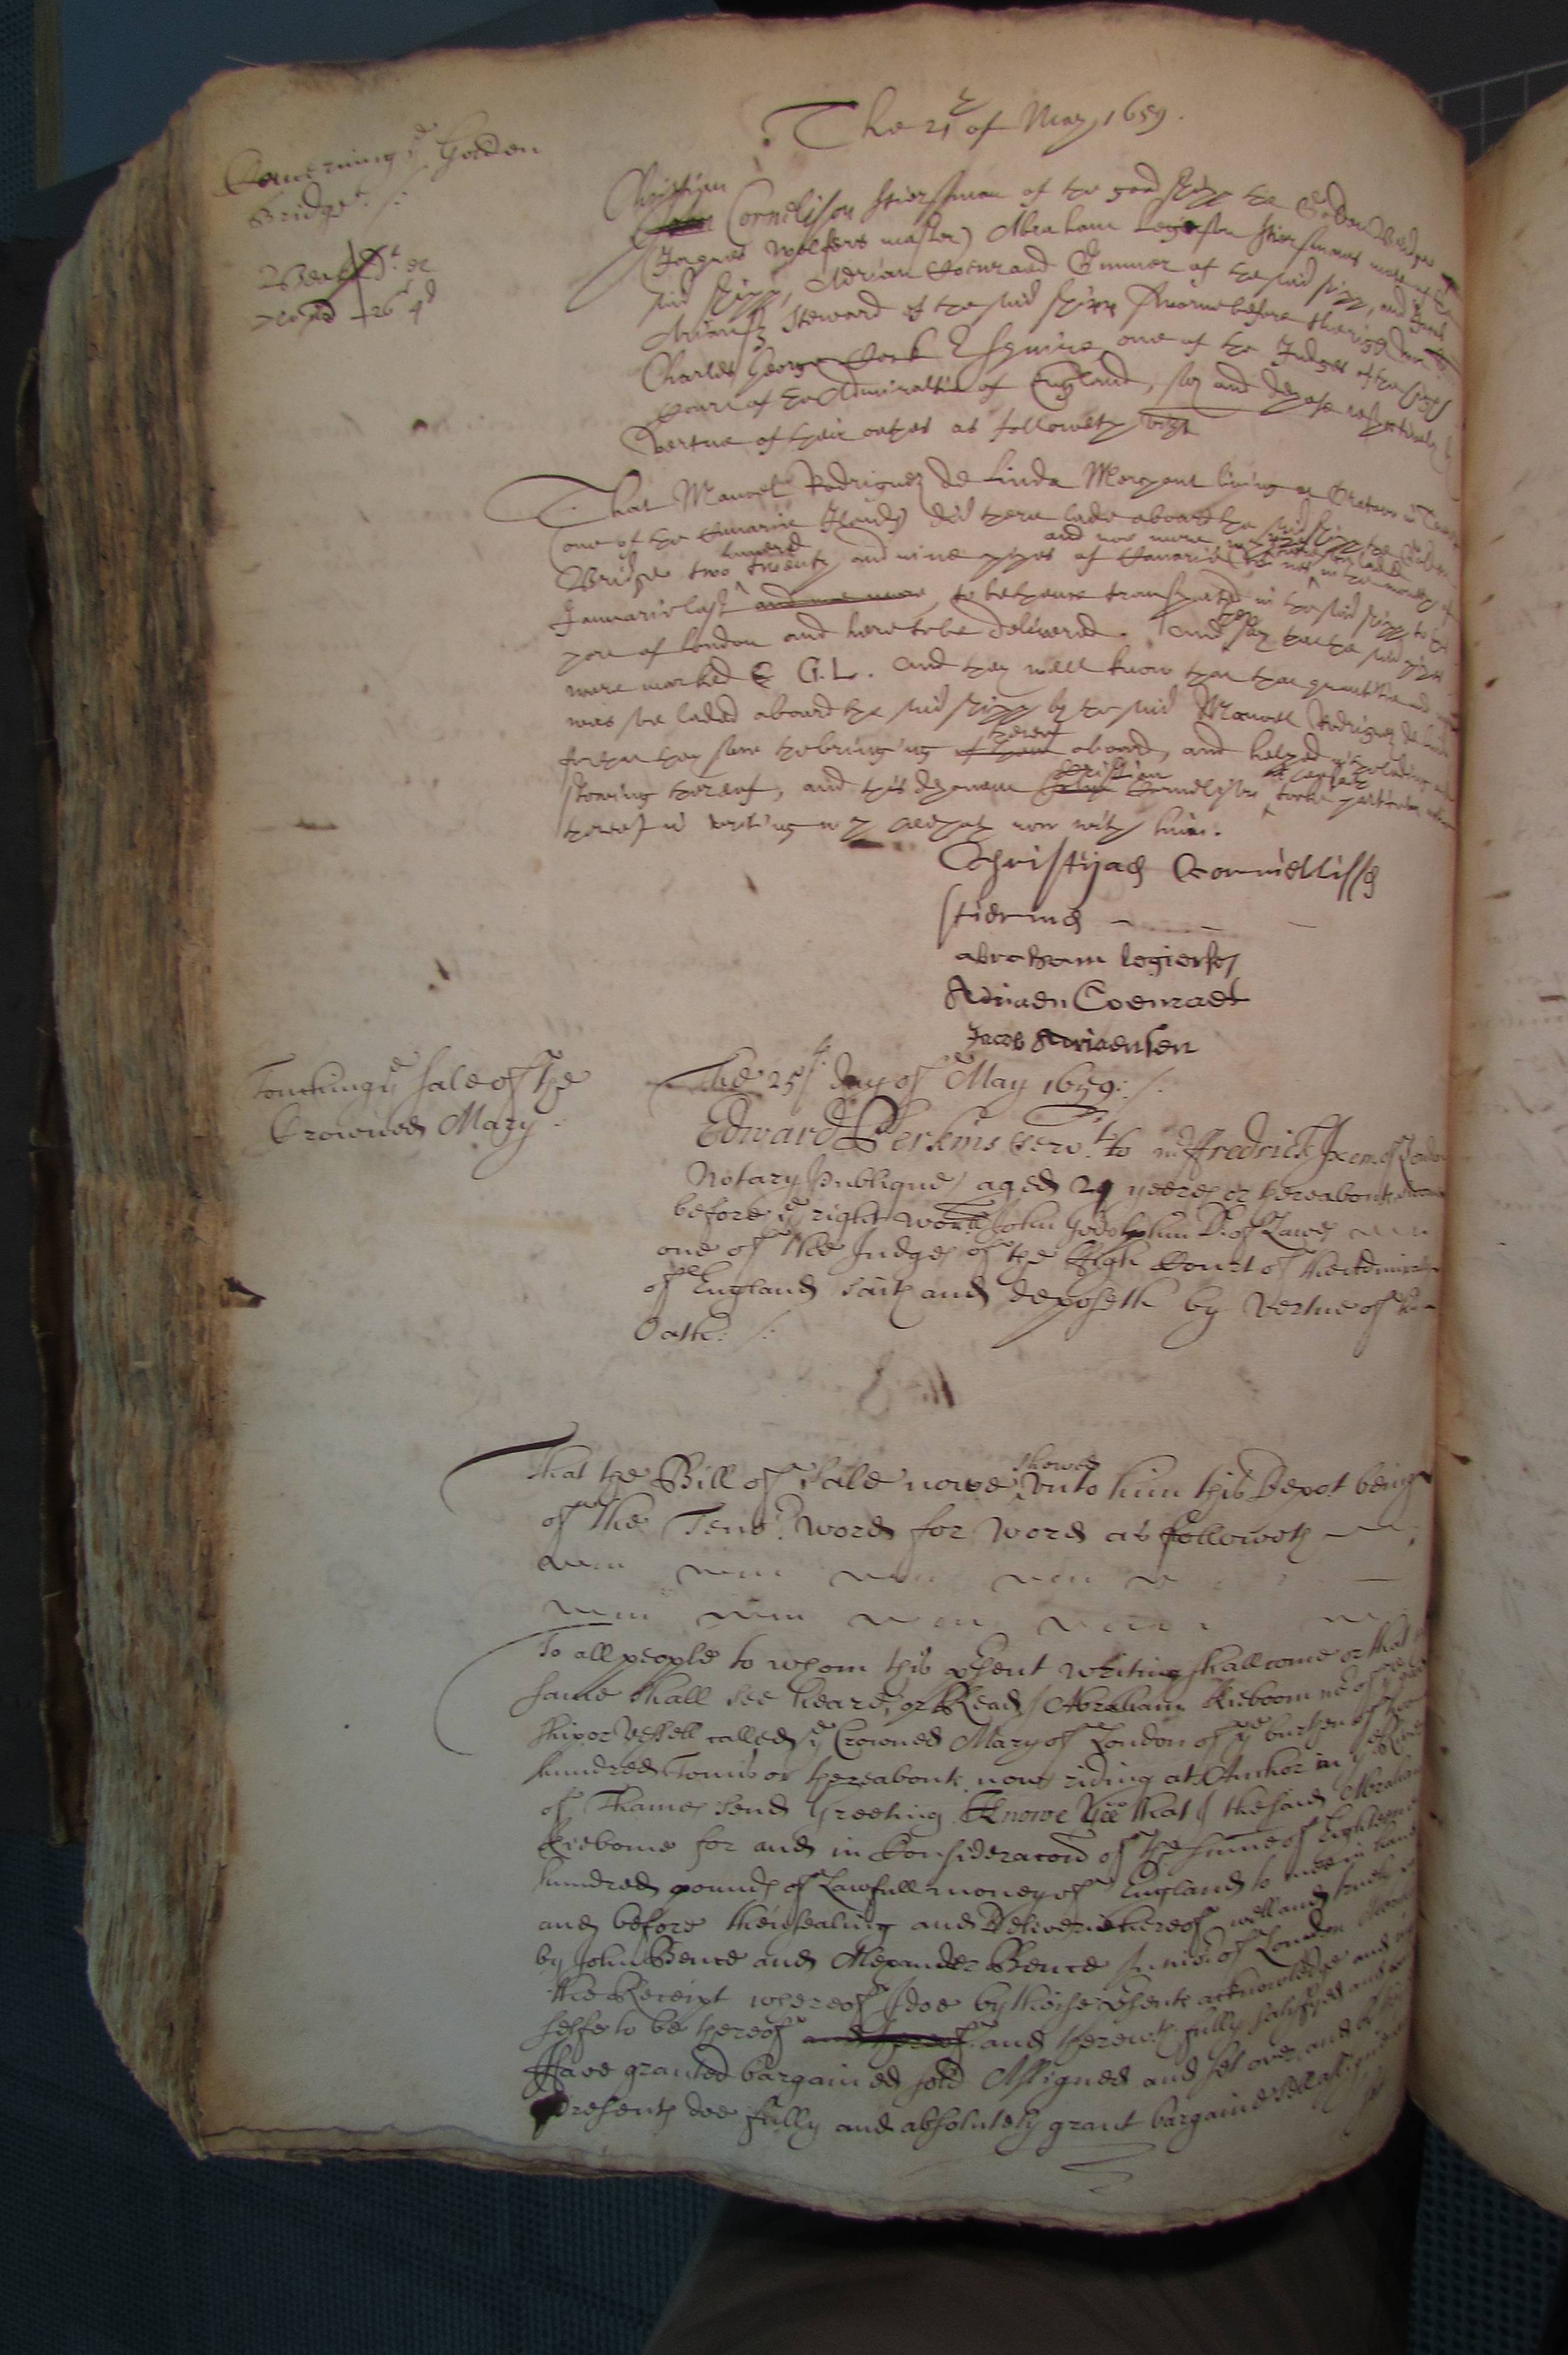 The 21th of May 1659.
Concerning ye Golden
Bridge. /:
Christijan
Cornelison stiersman of the good shipp the Golden Bridge
(Jaques Wolfers master) Abraham Legiersen stiersmans mate of the
said shipp, Adrian Coenraed Gunner of the said shipp, and Jacob
Adriansz Steward of the said shipp sworne before the right
Charles George Cock Esquire one of the Judges of the high
Court of the Admiraltie of England, say and depose respectively by
vertue of their oathes as followeth vizt
That Manoel Rodriguez de Linda Merchant living at
(one of the Canarie Islands) did there lade aboard the said shipp the Golden
hundred
and noe more
Bridge two twenty and nine pipes of Canarie in the moneth of
Januarie last and noe more, to be thence transported in the said shipp to the
port of London and here to be delivered. And they say that the said pipes
were marked G.L. And they well know that that quantitie and
was soe laded aboard the said shipp by the said Manoel Rodriguez de Linda
thereof
for that they saw the bringing of them aboard, and helped in the lading and
Christian
stowing thereof, and this deponent Cornelison tooke particular
thereof in writing which hee hath now with him.
Christijaen Cornellissen
stierman
abraham legiersen
Adriaen Coenraet
Jacob Adriaensen
Touching ye sale of the
Crowned Mary.
The 25th day of May 1659: /:
Edward Perkins servt. to mr ffredrick Ixem of London
Notary Publique, aged 21 yeeres or thereabouts sworne
before ye right worll John Godolphin Dr. of Lawes
one of the Judges of the High Court of the Admiralty
of England saith and deposeth by vertue of his
Oath: /:
showed
That the Bill of Sale nowe unto him this Depot. being
of the Tenor word for word as followeth
To all people to whom this psent writing shall come or that the
same shall see heare, or Read, Abraham Rieboom mr of ye good
ship or vessell called ye Crowned Mary of London of ye burthen of two
hundred Tonns or thereabouts now riding at Anchor in ye River
of Thames send Greeting. Knowe Yee that I the said Abraham
Riebome for and in Consideracon of the summe of Eighteene
hundred pounds of Lawfull money of England to mee in hand
and before the insealing and Deliverie hereof well and truely
by John Bence and Alexander Bence Junior of London
the Receipt whereof I doe by theise psents acknowledge and
selfe to be thereof and therewth. fully satisfyed and
Have granted bargained sold Assigned and set over, and by
presents doe fully and absolutely grant bargaine sell assigne